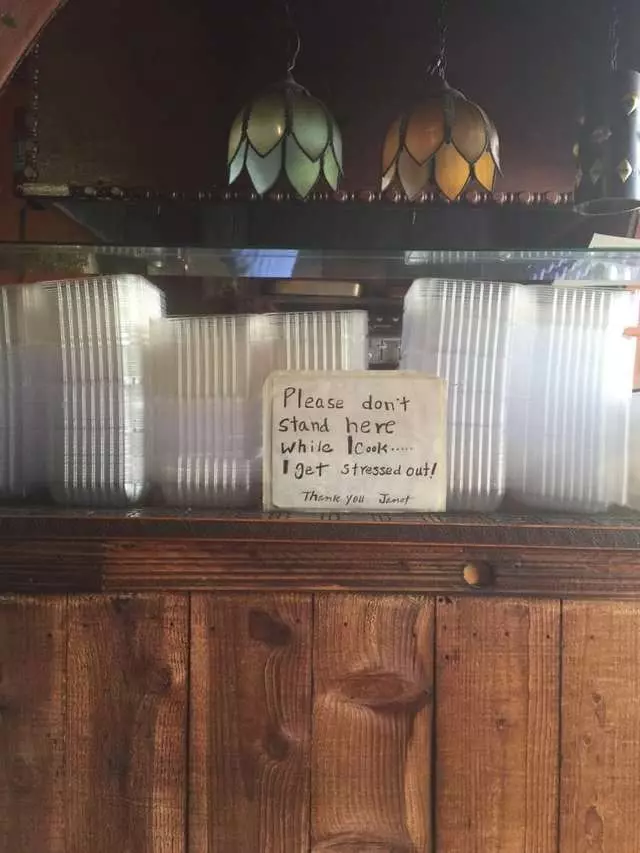 Please don't
stand here
while I cook.....
I get stressed out!
Thank you Janet